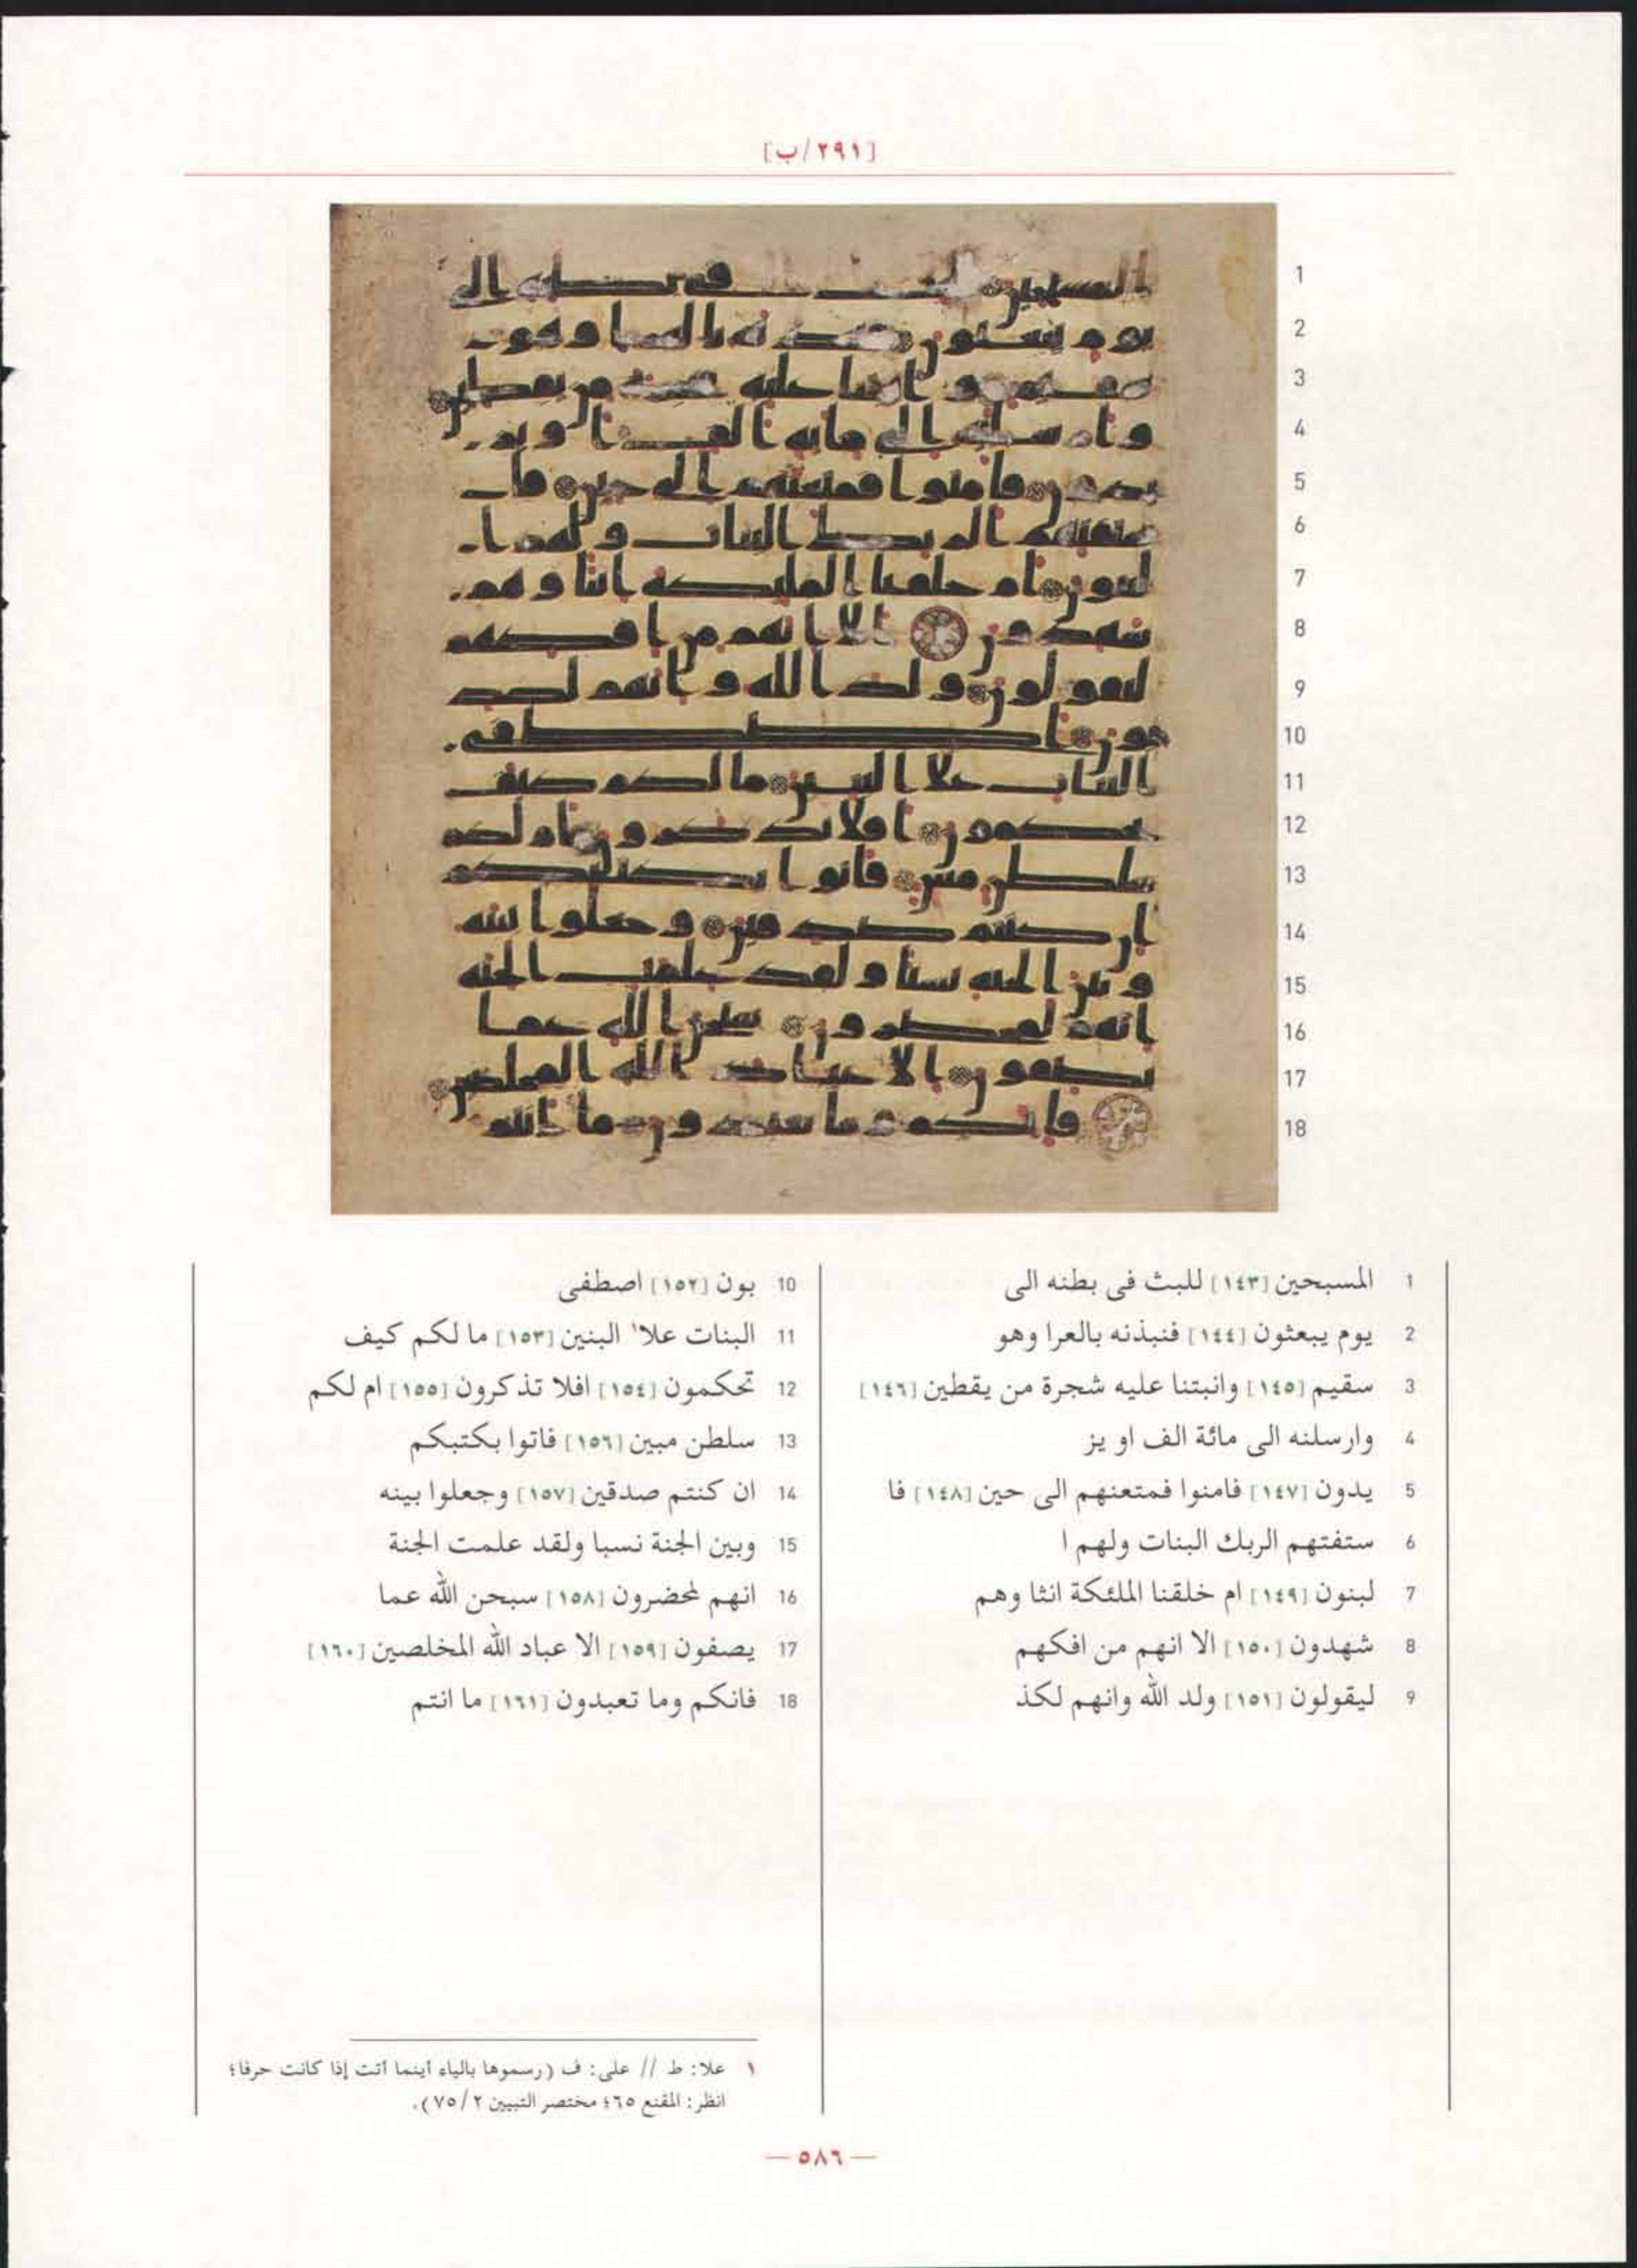 [٢٩١/ب]
1 المسبحين [١٤٣] للبث فى بطنه الى
2 يوم يبعثون [١٤٤] فنبذنه بالعرا وهو
3 سقيم [١٤٥] وانبتنا عليه شجرة من يقطين [١٤٦]
4 وارسلنه الى مائة الف او يز
5 يدون [١٤٧] فامنوا فمتعنهم الى حين [١٤٨] فا
6 ستفتهم الربك البنات ولهم ا
7 لبنون [١٤٩] ام خلقنا الملئكة انثا وهم
8 شهدون [١٥٠] الا انهم من افكهم
9 ليقولون [١٥١] ولد الله وانهم لكذ
10 بون [١٥٢] اصطفى
11 البنات علا١ البنين [١٥٣] ما لكم كيف
12 تحكمون [١٥٤] افلا تذكرون [١٥٥] ام لكم
13 سلطن مبين [١٥٦] فاتوا بكتبكم
14 ان كنتم صدقين [١٥٧] وجعلوا بينه
15 وبين الجنة نسبا ولقد علمت الجنة
16 انهم لمحضرون [١٥٨] سبحن الله عما
17 يصفون [١٥٩] الا عباد الله المخلصين [١٦٠]
18 فانكم وما تعبدون [١٦١] ما انتم
١ علا: ط // على: ف (رسموها بالياء أينما أتت إذا كانت حرفا؛
انظر: المقنع ٦٥؛ مختصر التبيين ٧٥/٢).
— ٥٨٦ —